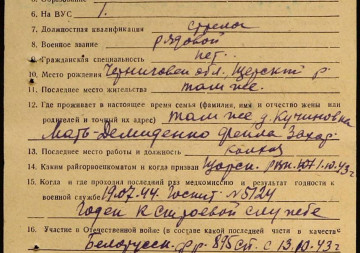 6. На ВУС 1.
7. Должностная квалификация стрелок
8. Военное звание рядовой
9. Гражданская специальность нет.
10. Место рождения Черниговск обл. Щорский р
11. Последнее место жительства там же.
12. Где проживает в настоящее время семья (фамилия, имя и отчество жены или
родителей и точный их адрес) там же д. Кучиновка
Мать-Демиденко Фрейза Захар.
13. Последнее место работы и должность колхоз
14. Каким райгорвоенкоматом и когда призван Щорск. РВК 1.10.43
15. Когда и где проходил последний раз медкомиссию и результат годности к
военной службе 19.07.44. Госпит. №5724
Годен к строевой службе
16. Участие в Отечественной войне (в составе какой последней части в качестве
Белорусск. фр. 875 сп. с 13.10.43 г